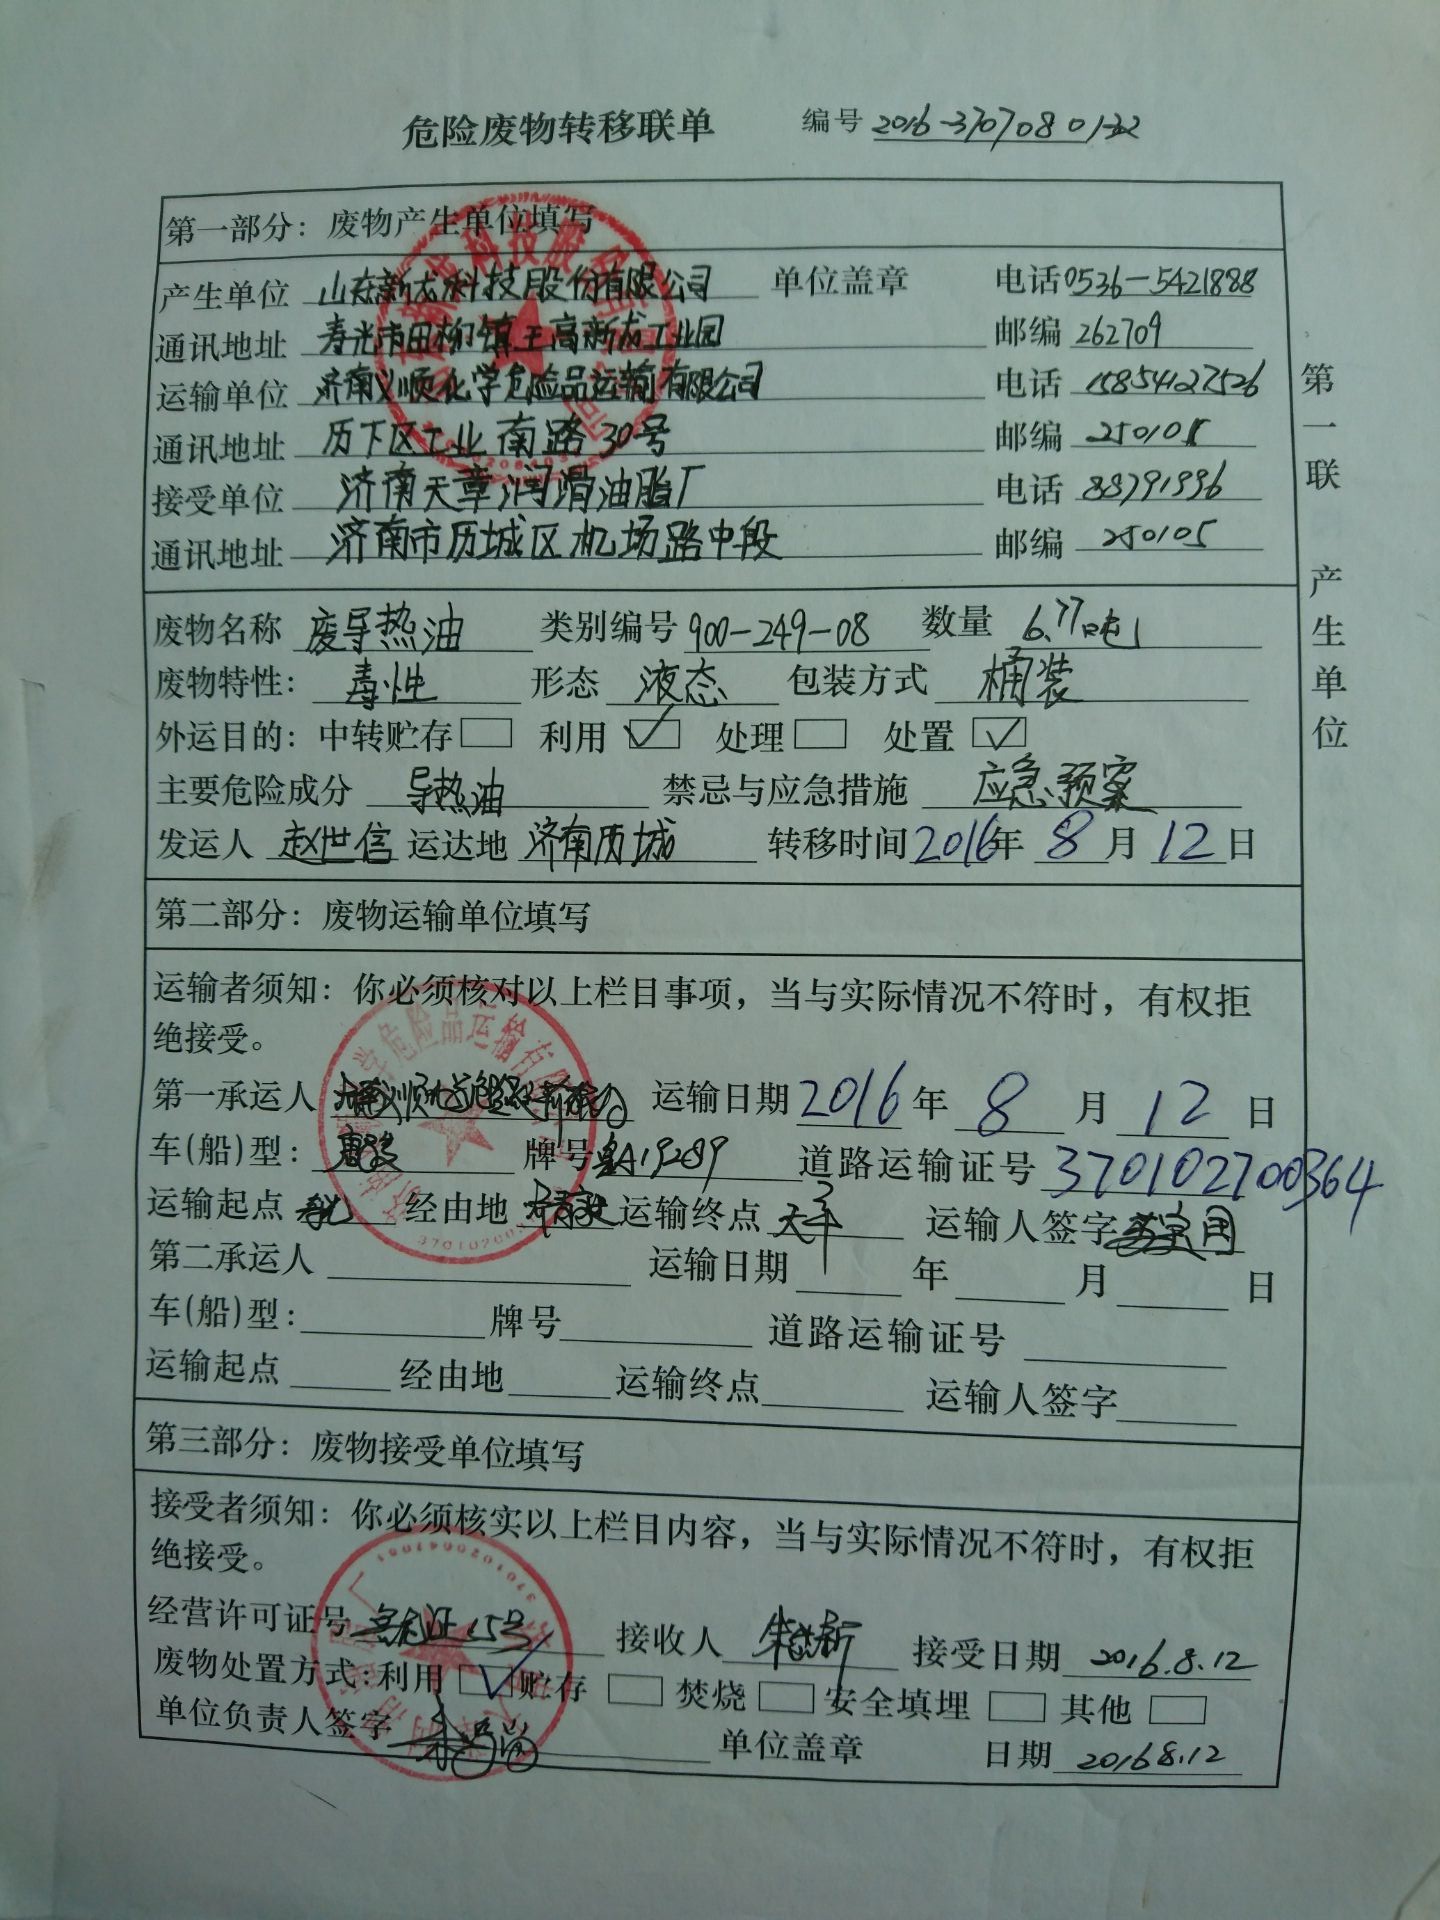 危险废物转移联单 编号 2016-3707080132
第一部分：废物产生单位填写
产生单位 山东新龙科技股份有限公司 单位盖章 电话 0536-5421888
通讯地址 寿光市田柳镇王高新龙工业园 邮编 262709
运输单位 济南义顺化学危险品运输有限公司 电话 15854127526
通讯地址 历下区工业南路30号 邮编
接受单位 济南天章润滑油脂厂 电话 88791996
通讯地址 济南市历城区机场路中段 邮编 250105
废物名称 废导热油 类别编号 900-249-08 数量 6.77吨
废物特性：毒性 形态 液态 包装方式 桶装
外运目的：中转贮存□ 利用☑ 处理□ 处置☑
主要危险成分 导热油 禁忌与应急措施 应急预案
发运人 赵世信 运达地 济南历城 转移时间 2016年8月12日
第一联 产生单位
第二部分：废物运输单位填写
运输者须知：你必须核对以上栏目事项，当与实际情况不符时，有权拒
绝接受。
第一承运人 运输日期 2016年8月12日
车(船)型： 牌号 19289 道路运输证号 370102700364
运输起点 经由地 运输终点 运输人签字
第二承运人 运输日期 年 月 日
车(船)型： 牌号 道路运输证号
运输起点 经由地 运输终点 运输人签字
第三部分：废物接受单位填写
接受者须知：你必须核实以上栏目内容，当与实际情况不符时，有权拒
绝接受。
经营许可证号 15号 接收人 接受日期 2016.8.12
废物处置方式：利用☑ 贮存□ 焚烧□ 安全填埋□ 其他□
单位负责人签字 单位盖章 日期 2016 8.12